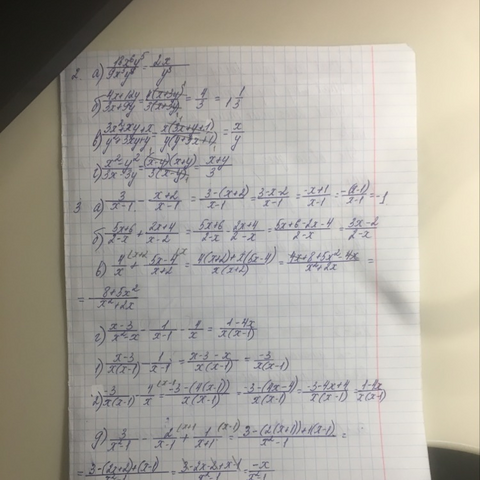 2. а) 18x⁶y⁵/9x⁵y⁸ = 2x/y³
б) 4x+12y/3x+9y = 4(x+3y)/3(x+3y) = 4/3 = 1 1/3
в) 3x²+xy+x/y²+3xy+y = x(3x+y+1)/y(y+3x+1) = x/y
с) x²-y²/3x-3y = (x-y)(x+y)/3(x-y) = x+y/3
3. а) 3/x-1 - x+2/x-1 = 3-(x+2)/x-1 = 3-x-2/x-1 = -x+1/x-1 = -(x-1)/x-1 = -1
б) 5x+6/2-x + 2x+4/x-2 = 5x+6/2-x - 2x+4/2-x = 5x+6-2x-4/2-x = 3x-2/2-x
в) 4/x (x+2 + 5x-4/x+2 (x = 4(x+2)+x(5x-4)/x(x+2) = 4x+8+5x²-4x/x²+2x =
= 8+5x²/x²+2x
г) x-3/x²-x - 1/x-1 - 4/x = 1-4x/x(x-1)
1) x-3/x(x-1) - 1/x-1 = x-3-x/x(x-1) = -3/x(x-1)
2) -3/x(x-1) - 4/x (x-1 = -3-(4(x-1))/x(x-1) = -3-(4x-4)/x(x-1) = -3-4x+4/x(x-1) = 1-4x/x(x-1)
д) 3/x²-1 - 2/x-1 (x+1 + 1/x+1 (x-1) = 3-(2(x+1))+1(x-1)/x²-1 =
= 3-(2x+2)+(x-1)/x²-1 = 3-2x-2+x-1/x²-1 = -x/x²-1